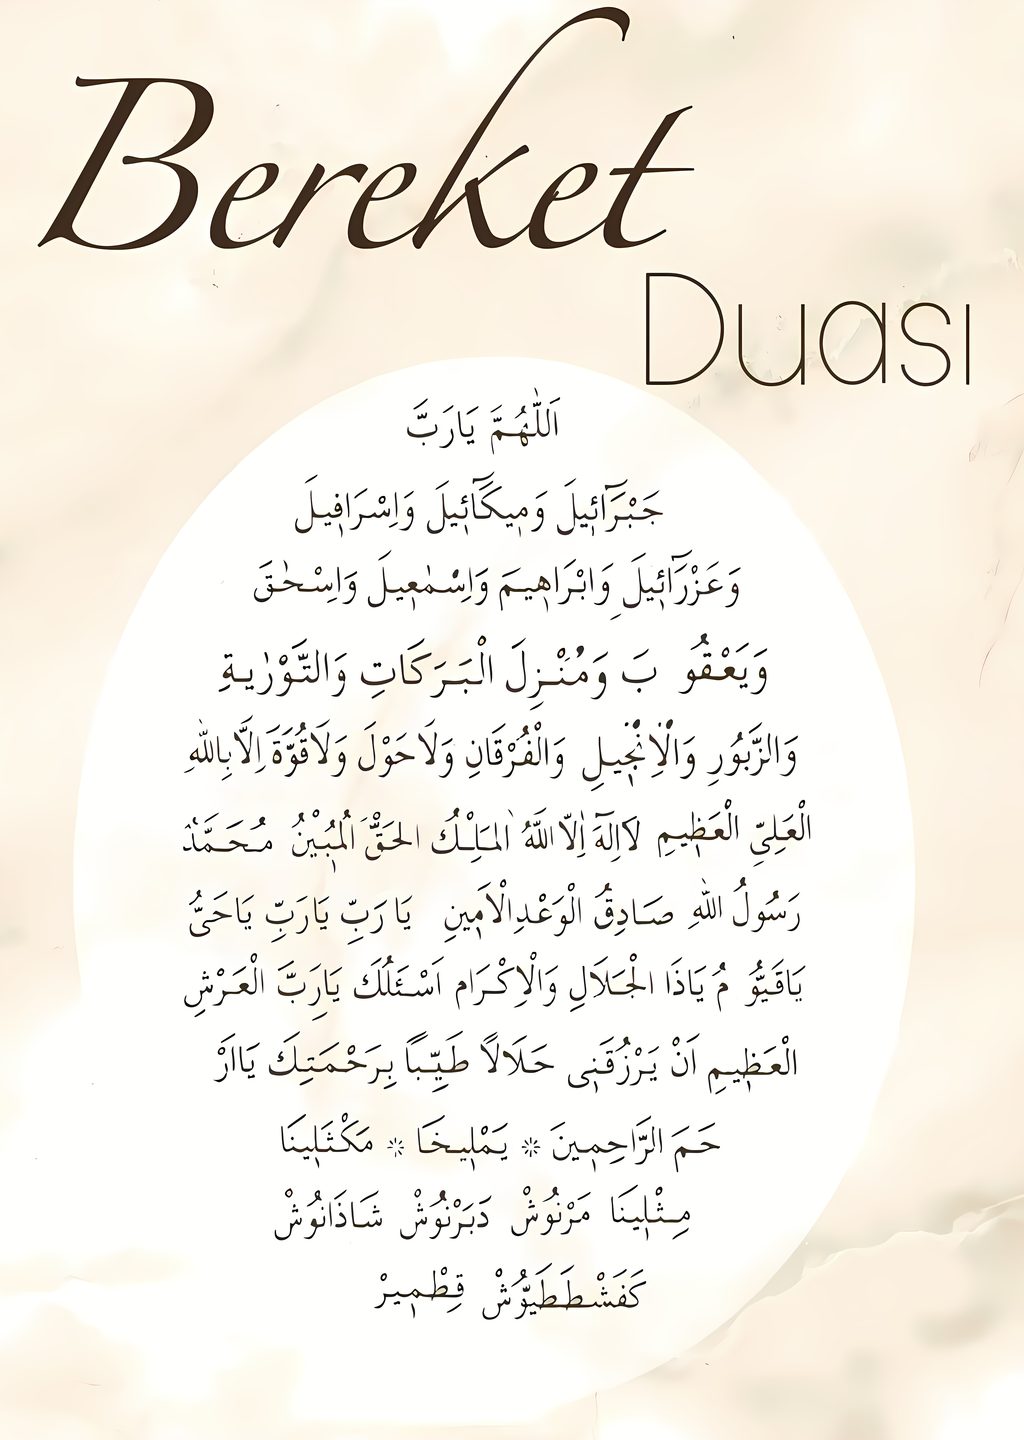 Bereket
Duası
اَللّٰهُمَّ يَارَبَّ
جَبْرَٓائِيلَ وَمِيكَٓائِيلَ وَاِسْرَافِيلَ
وَعَزْرَٓائِيلَ وَابْرَاهِيمَ وَاِسْمٰعِيلَ وَاِسْحٰقَ
وَيَعْقُو بَ وَمُنْزِلَ الْبَرَكَاتِ وَالتَّوْرٰيةِ
وَالزَّبُورِ وَالْاِنْجِيلِ وَالْفُرْقَانِ وَلَاحَوْلَ وَلَاقُوَّةَ اِلَّابِاللّٰهِ
الْعَلِىِّ الْعَظِيمِ لَااِلٰهَ اِلَّااللّٰهُ المَلِكُ الحَقُّ المُبِيْنُ مُحَمَّدٌ
رَسُولُ اللّٰهِ صَادِقُ الْوَعْدِالْاَمِينِ يَا رَبِّ يَارَبِّ يَاحَىُّ
يَاقَيُّو مُ يَاذَا الْجَلَالِ وَالْاِكْرَام اَسْئَلُكَ يَارَبَّ الْعَرْشِ
الْعَظِيمِ اَنْ يَرْزُقَنِى حَلَالًا طَيِّبًا بِرَحْمَتِكَ يَااَرْ
حَمَ الرَّاحِمِينَ * يَمْلِيخَا * مَكْثَلِينَا
مِثْلِينَا مَرْنُوشْ دَبَرْنُوشْ شَاذَانُوشْ
كَفَشْطَطَيُّوشْ قِطْمِيرْ